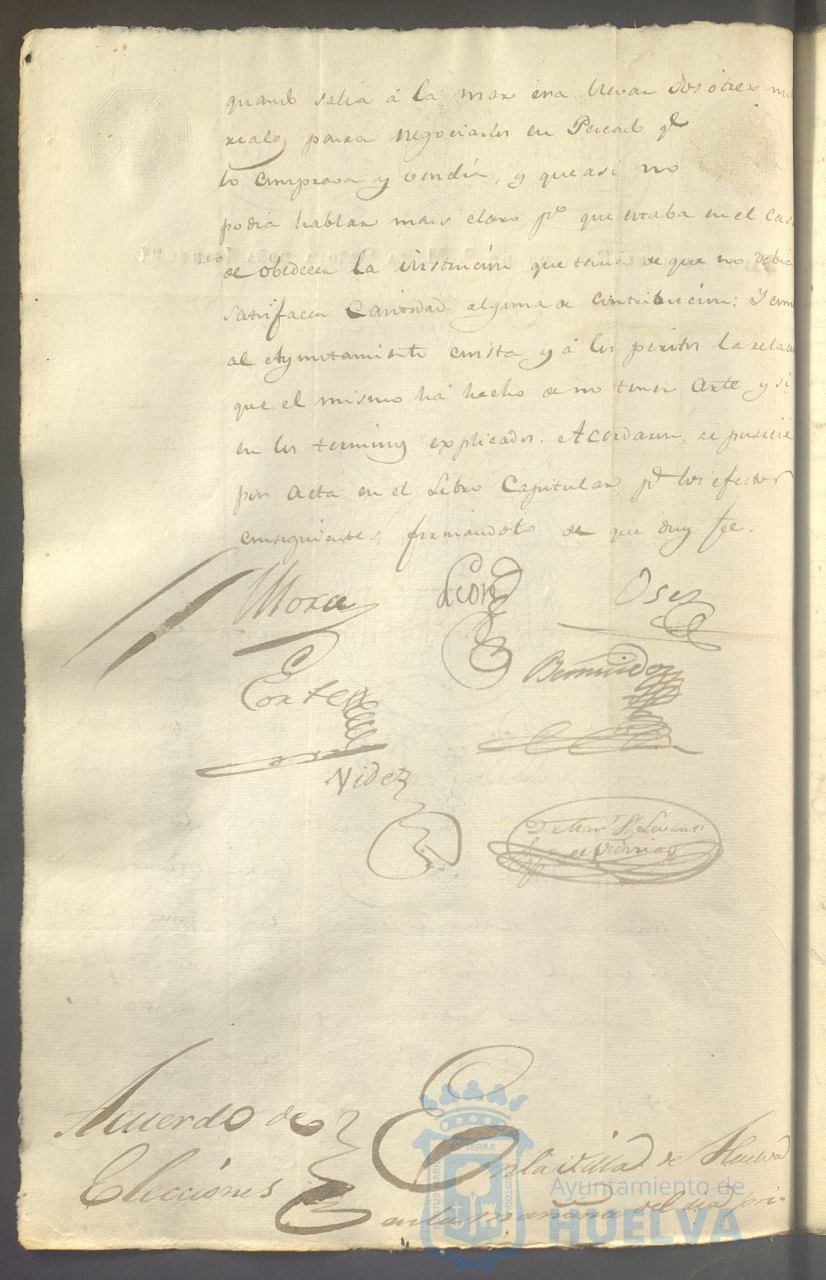 quando salia á la mar era llevar dos ó tres mi
reales para negociarlos en Pescado qe
lo compraba y vendia, y que asi no
podia hablar mas claro pr que estaba en el cas
de obedecer la instrucion que tenia de que no debia
satisfacer cantidad alguna de contribucion: Y com
al Ayuntamiento consta y á los peritos la relac
que el mismo há hecho de no tener arte y si
en los terminos explicados. Acordaron, se pusiese
por acta en el Libro Capitular pa los efectos
consiguientes, firmandolo de que doy fee.
Mora León
Cortes Bermudez
Videz
Acuerdo de
Elecciones
En la Villa de Huelva
en la mañana del dia pri-
Ayuntamiento de
HUELVA